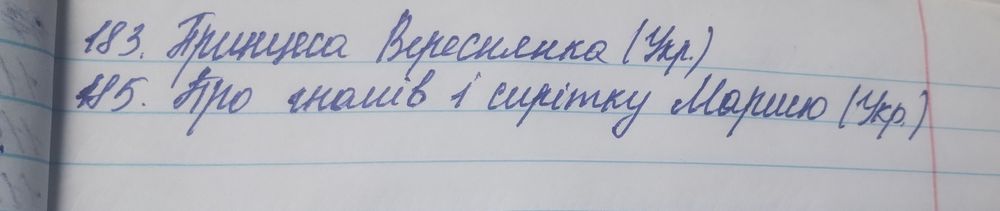 183. Принцеса Вереснянка (Укр.)
185. Про гномів і сирітку Марисю (Укр.)